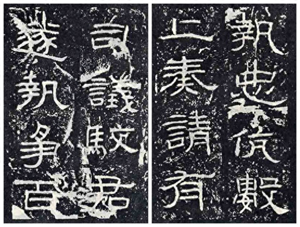 執忠伉數
上奏請有
司議駮君
遂執争百